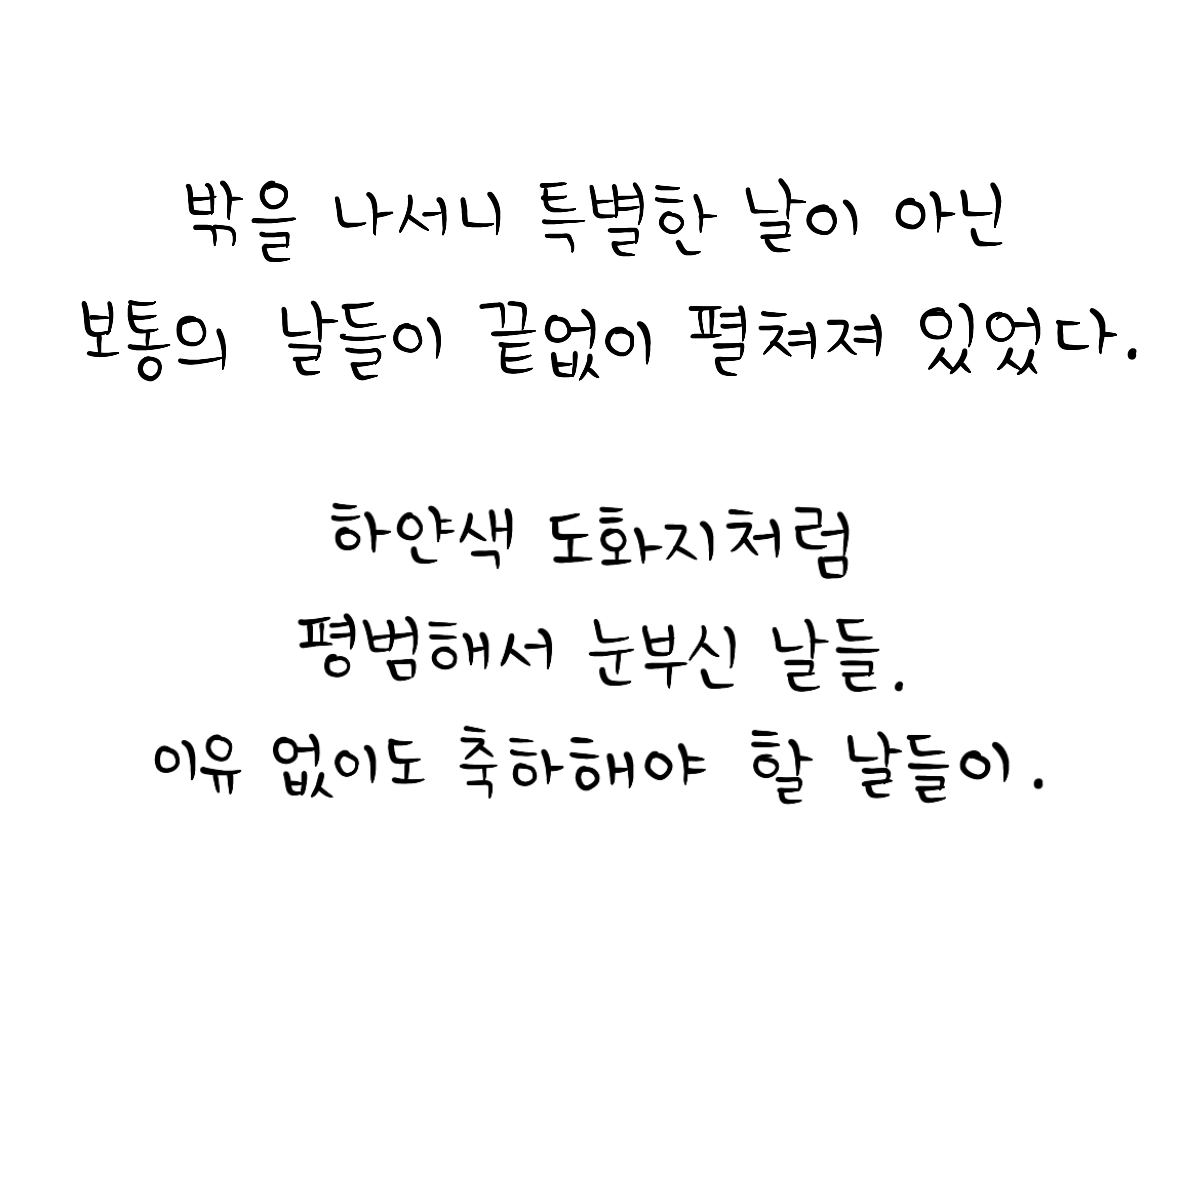 밖을 나서니 특별한 날이 아닌
보통의 날들이 끝없이 펼쳐져 있었다.
하얀색 도화지처럼
평범해서 눈부신 날들.
이유 없이도 축하해야 할 날들이.